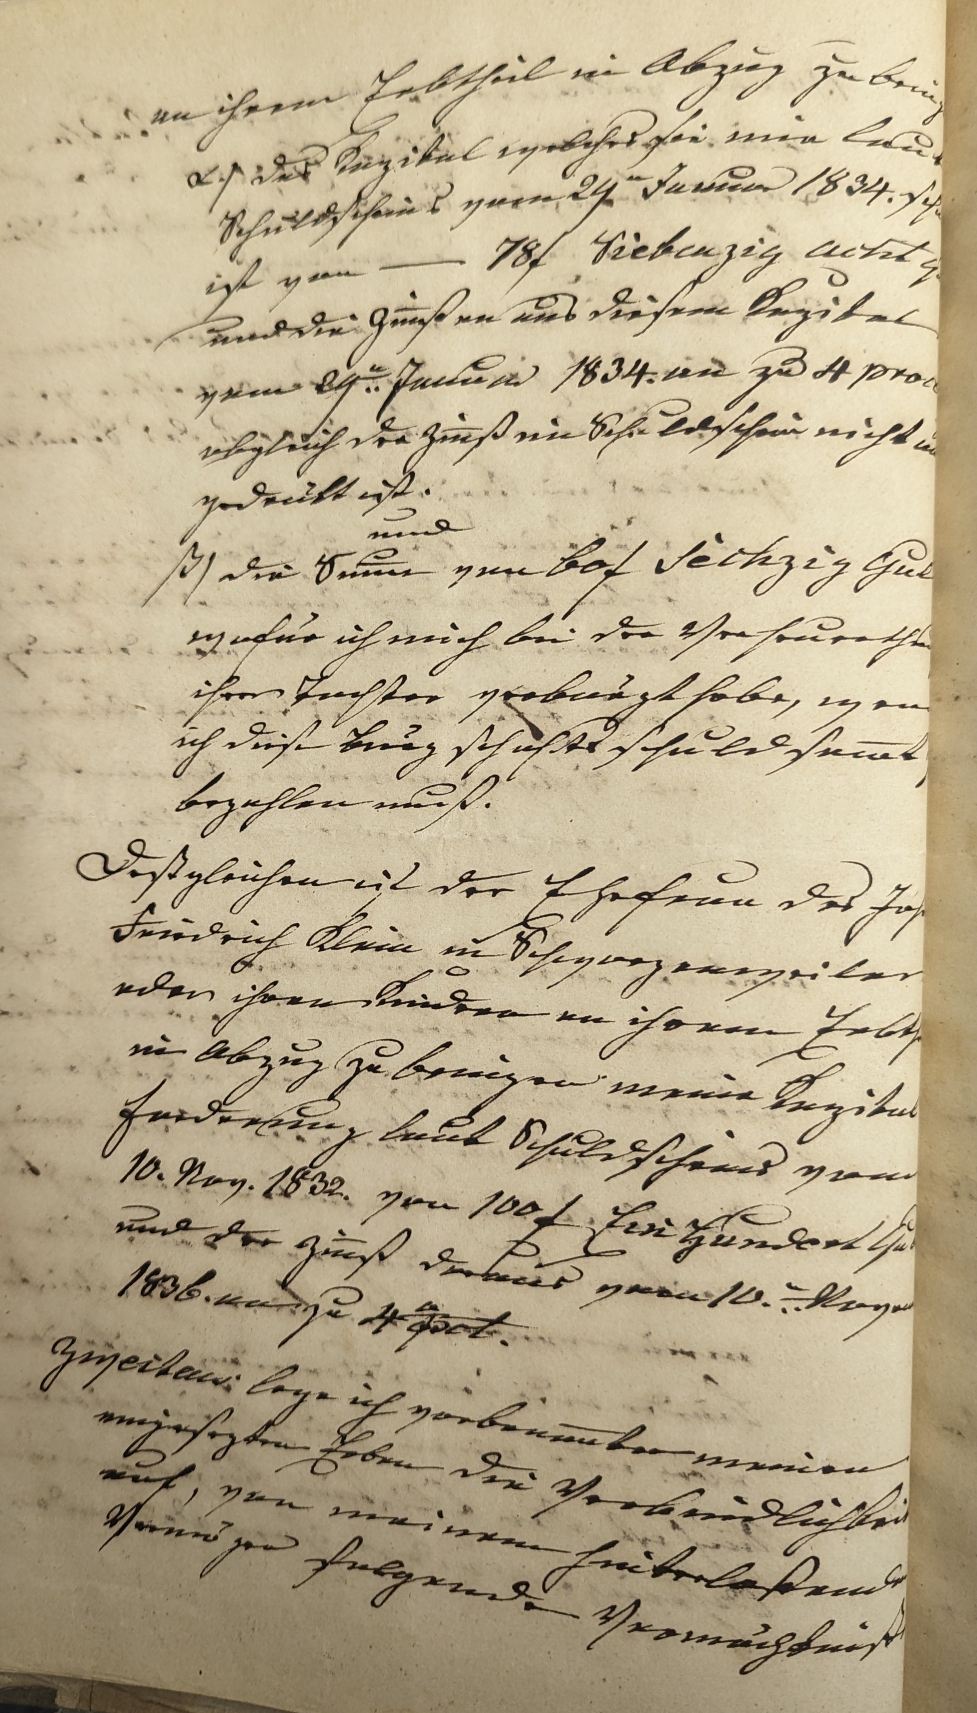 an ihrem Erbtheil in Abzug zu bring
α.) das Kapital welches sie mir laut
Schuldscheins vom 29n Januar 1834. sch
ist von — 78f Siebenzig acht G
und die Zinßen aus diesem Kapital
vom 29n. Januar 1834. an zu 4 proc
obgleich der Zinß im Schuldschein nicht
gedrükt ist.
und
β) die Summe von 60f Sechzig Gul
wofür ich mich bei der Verheurath
ihrer Tochter verbürgt habe, wen
ich diese Bürgschaftsschuld samt
bezahlen muß.
Desgleichen ist der Ehefrau des Joh
Friedrich Klein in
oder ihren Kindern an ihrem Erbth
in Abzug zu bringen meine Kapital
forderung laut Schuldscheins vom
10. Nov. 1832. von 100f Ein Hundert Gul
und der Zinß daraus vom 10.n Nove
1836. an zu 4 pct.
Zweitens: lege ich vorbenannten meinen
eingesezten Erben die Verbindlichkeit
auf, von meinem hinterlaßende
Vermögen folgende Vermächtniß